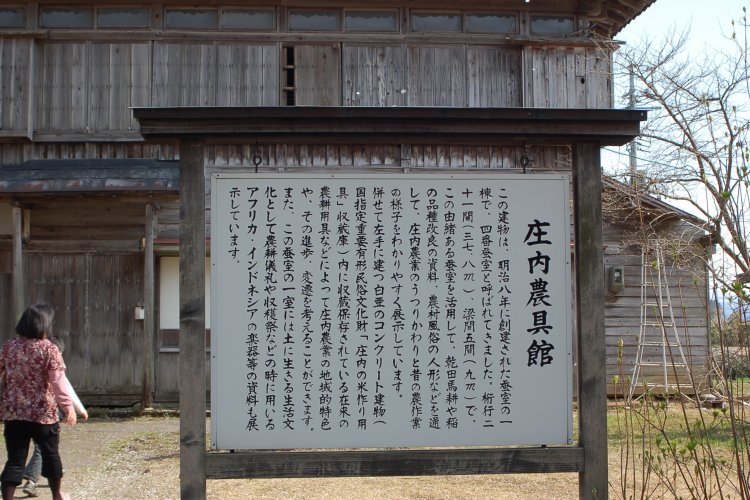 庄内農具館
この建物は、明治八年に創建された蚕室の一
棟で、四番蚕室と呼ばれてきました。桁行二
十一間(三七.八m)、梁間五間(九m)で、
この由緒ある蚕室を活用して、乾田馬耕や稲
の品種改良の資料、農村風俗の人形などを通
して、庄内農業のうつりかわりと昔の農作業
の様子をわかりやすく展示しています。
併せて左手に建つ白亜のコンクリート建物(
国指定重要有形民俗文化財「庄内の米作り用
具」収蔵庫)内に収蔵保存されている在来の
農耕用具などによって庄内農業の地域的特色
や、その進歩、変遷を考えることができます。
また、この蚕室の一室には土に生きる生活文
化として農耕儀礼や収穫祭などの時に用いる
アフリカ・インドネシアの楽器等の資料も展
示しています。